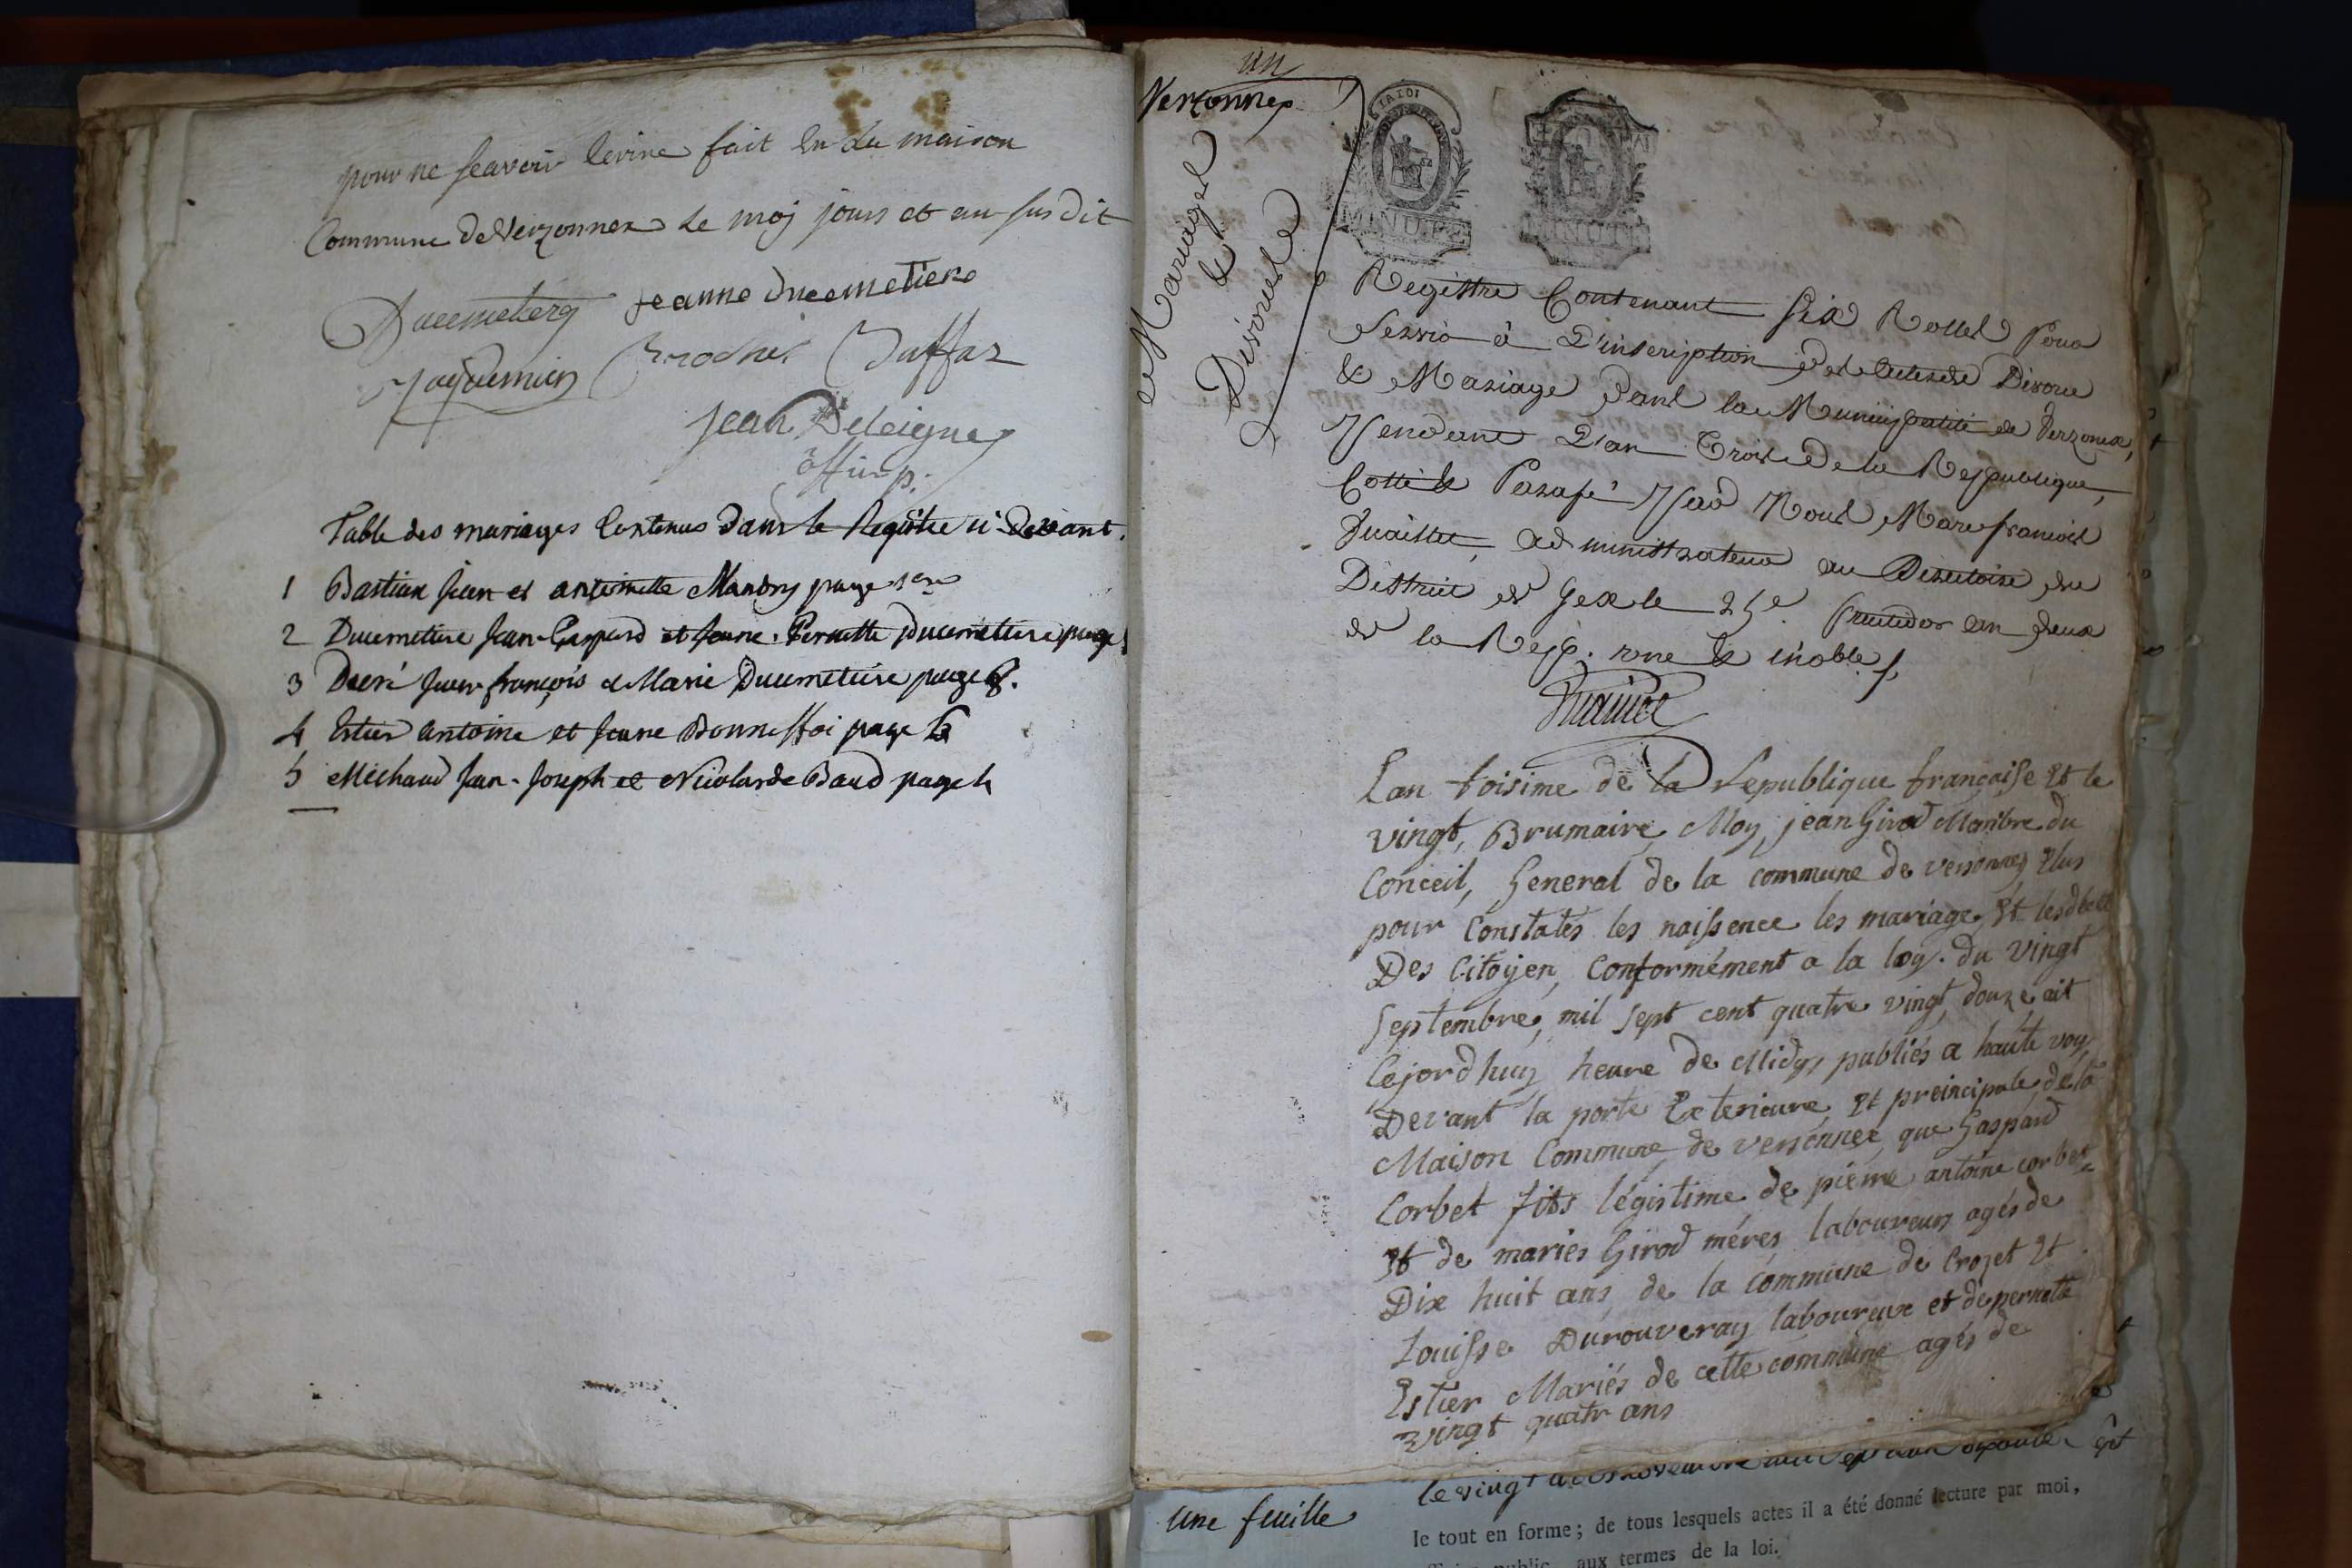 pour ne scavoir Ecrire fait En La maison
Commune de Verzonnex Le moj jours et an susdit
Ducimetierg jeanne Ducemetiere
Brochet Duffar
jean Deleigney
off. p.
Table des mariages Contenus dans le Registre ci-Devant.
1 Bastian Jean et antoinette Mandry page 1ere
2 Ducimetiere Jean-Gaspard et Jeane-Pernette Ducimetiere page
3 Decré Jean françois et Marie Ducimetiere page 8.
4 Estier antoine et Jeane Bonneffoi page 6
5 Michaud Jean-Joseph et Nicolarde Baud page
un
Verzonnex
Mariages
&
Divorces
MINUTE
MINUTE
Registre Contenant six Rolles Pour
Servir à L'inscription des actes de Divorce
& Mariage dans la Municipalité de Verzonex,
Pendant L'an Trois de la République,
Cotté & Parafé Par Nous Marc françois
administrateur au Directoire du
District de Gex le 25e. fructidor an deux
de la Rep. une & indble.
Lan toisime de la Republique française Et le
vingt, Brumaire, Moy, jean Girod Manbre du
Conceil, General de la commune de versonnex Elus
pour Constatés les naissence les mariage, Et les déces
Des Citoyen, Conformément a la loy. du vingt
septembre, mil sept cent quatre vingt, douze, ait
Cejordhuy heure de Midy, publiés a haute voy
Devant la porte Exterieure, Et preincipale de la
Maison Commune de versonnex, que Gaspard
Corbet fits légistime de pierre antoine corbet
Et de maries Girod méres laboureurs agés de
Dix huit ans de la commune de Crozet Et
Louisse Durouveray laboureux et de pernette
Estier Mariés de cette commune agés de
vingt quatr ans
une feuille
le vingt
le tout en forme ; de tous lesquels actes il a été donné lecture par moi,
public aux termes de la loi.